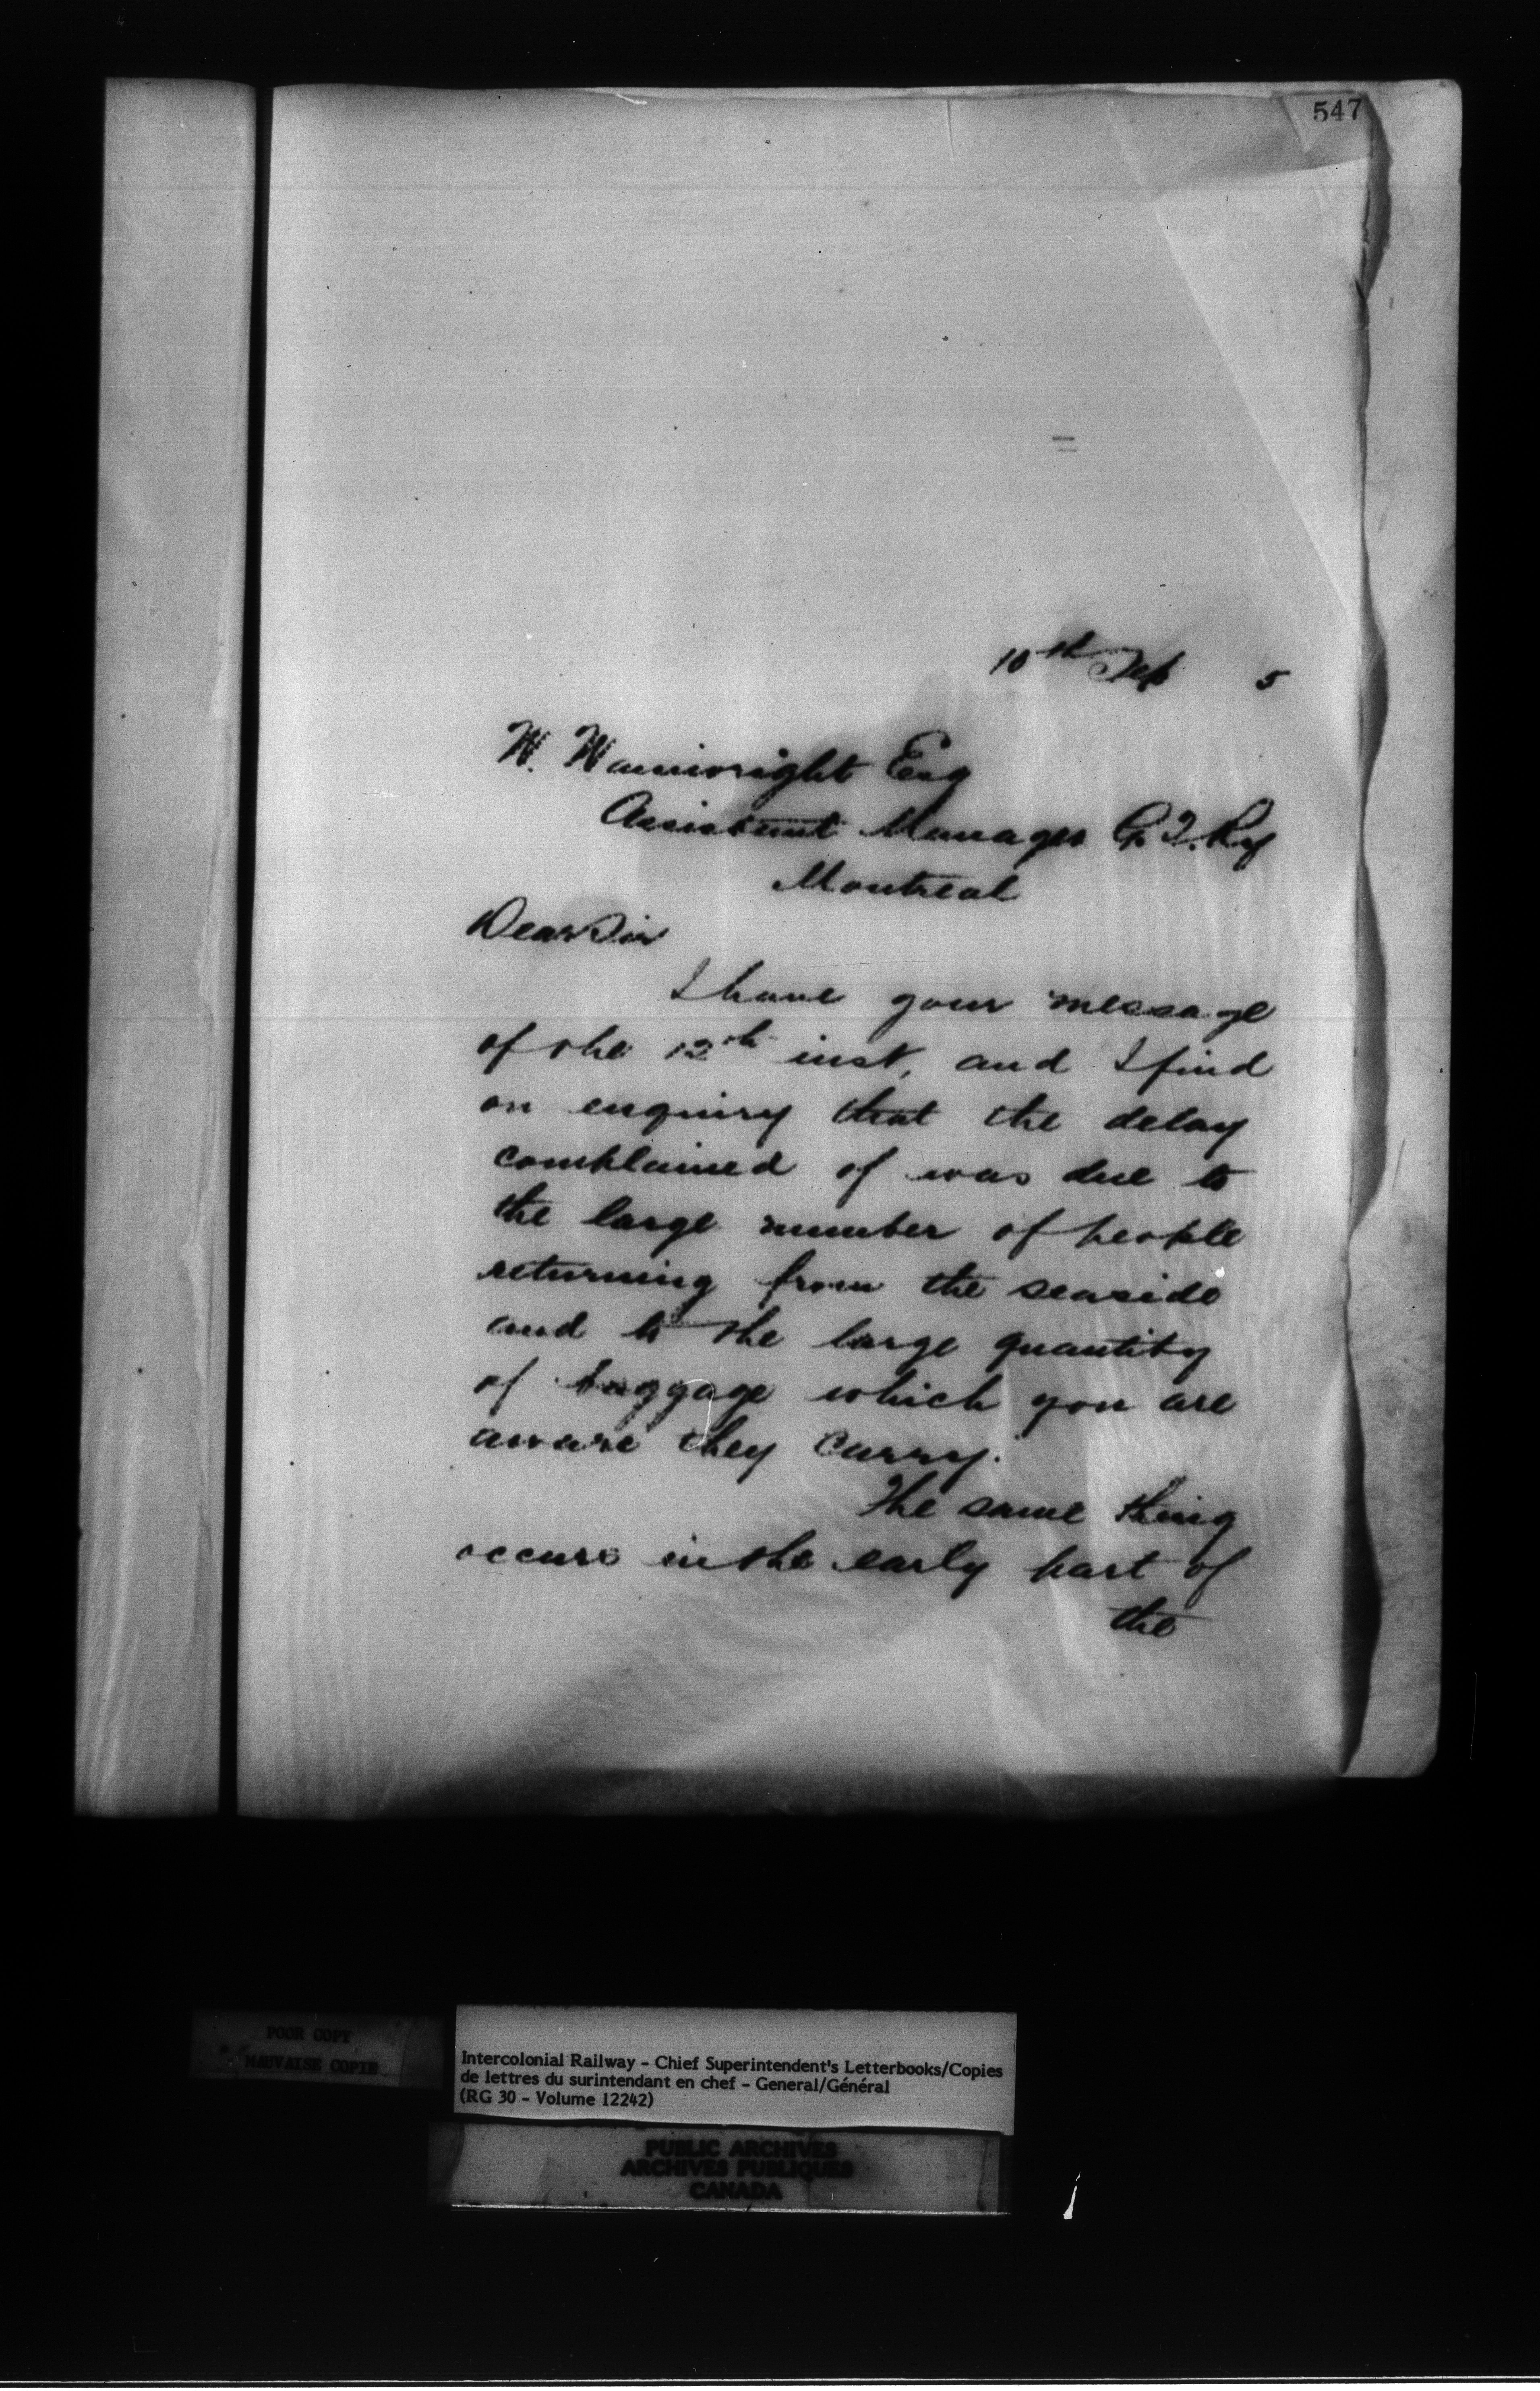 547
10th Sep 5
W. Wainwright Esq
Assistant Manager G. T. Ry
Montreal
Dear Sir
I have your message
of the 12th inst, and I find
on enquiry that the delay
complained of was due to
the large number of people
returning from the seaside
and to the large quantity
of baggage which you are
aware they carry.
The same thing
occurs in the early part of
the
POOR COPY
MAUVAISE COPIE
Intercolonial Railway - Chief Superintendent's Letterbooks/Copies
de lettres du surintendant en chef - General/Général
(RG 30 - Volume 12242)
PUBLIC ARCHIVES
ARCHIVES PUBLIQUES
CANADA